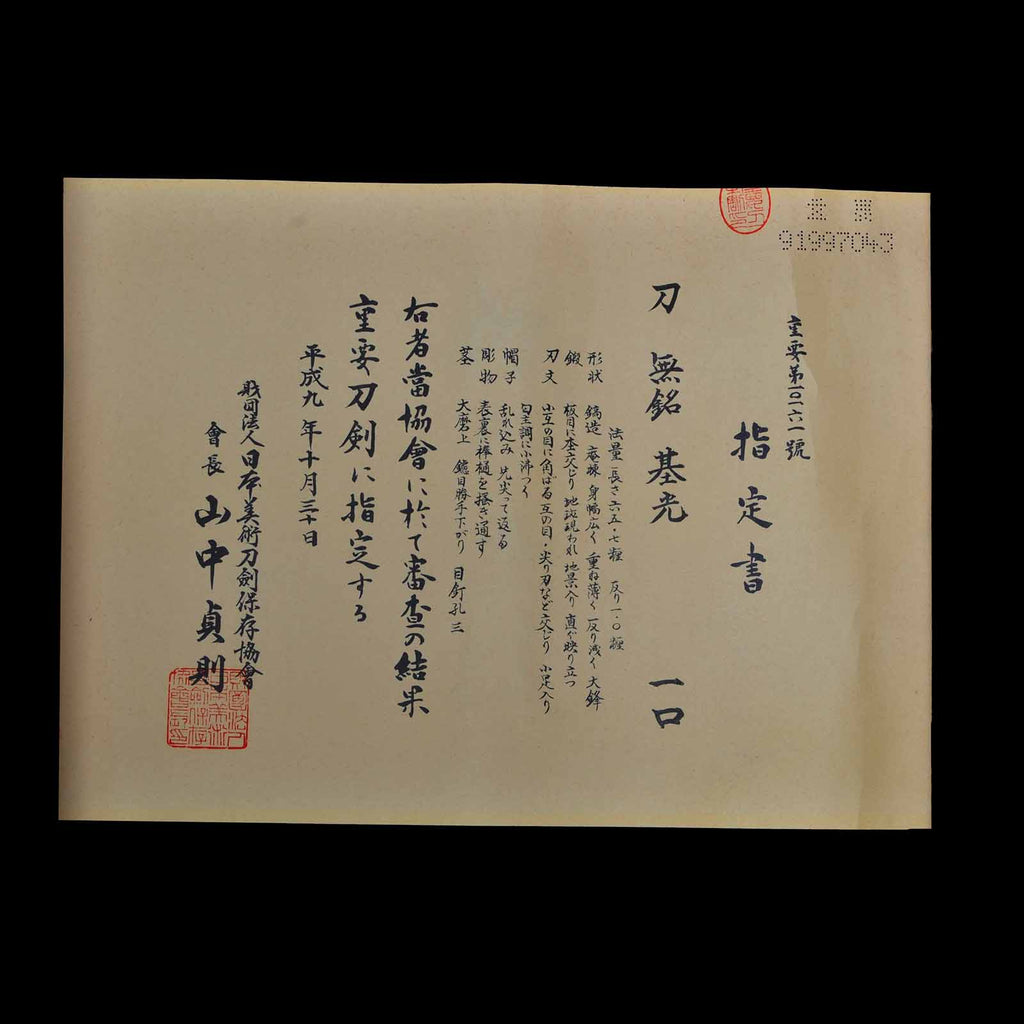 91997043
重要第一〇一六一號
指定書
刀 無銘 基光 一口
法量 長さ六五・七糎 反り一・〇糎
形状 鎬造 庵棟 身幅広く 重ね薄く 反り浅く 大鋒
鍛 板目に杢交じり 地斑現われ 地景入り 直ぐ映り立つ
刃文 小互の目に角ばる互の目・尖り刃など交じり 小足入り
匂主調に小沸つく
帽子 乱れ込み 先尖って返る
彫物 表裏に棒樋を掻き通す
茎 大磨上 鑢目勝手下がり 目釘孔三
右者當協會に於て審査の結果
重要刀剣に指定する
平成九年十月三十日
財団法人日本美術刀劍保存協會
會長 山中貞則